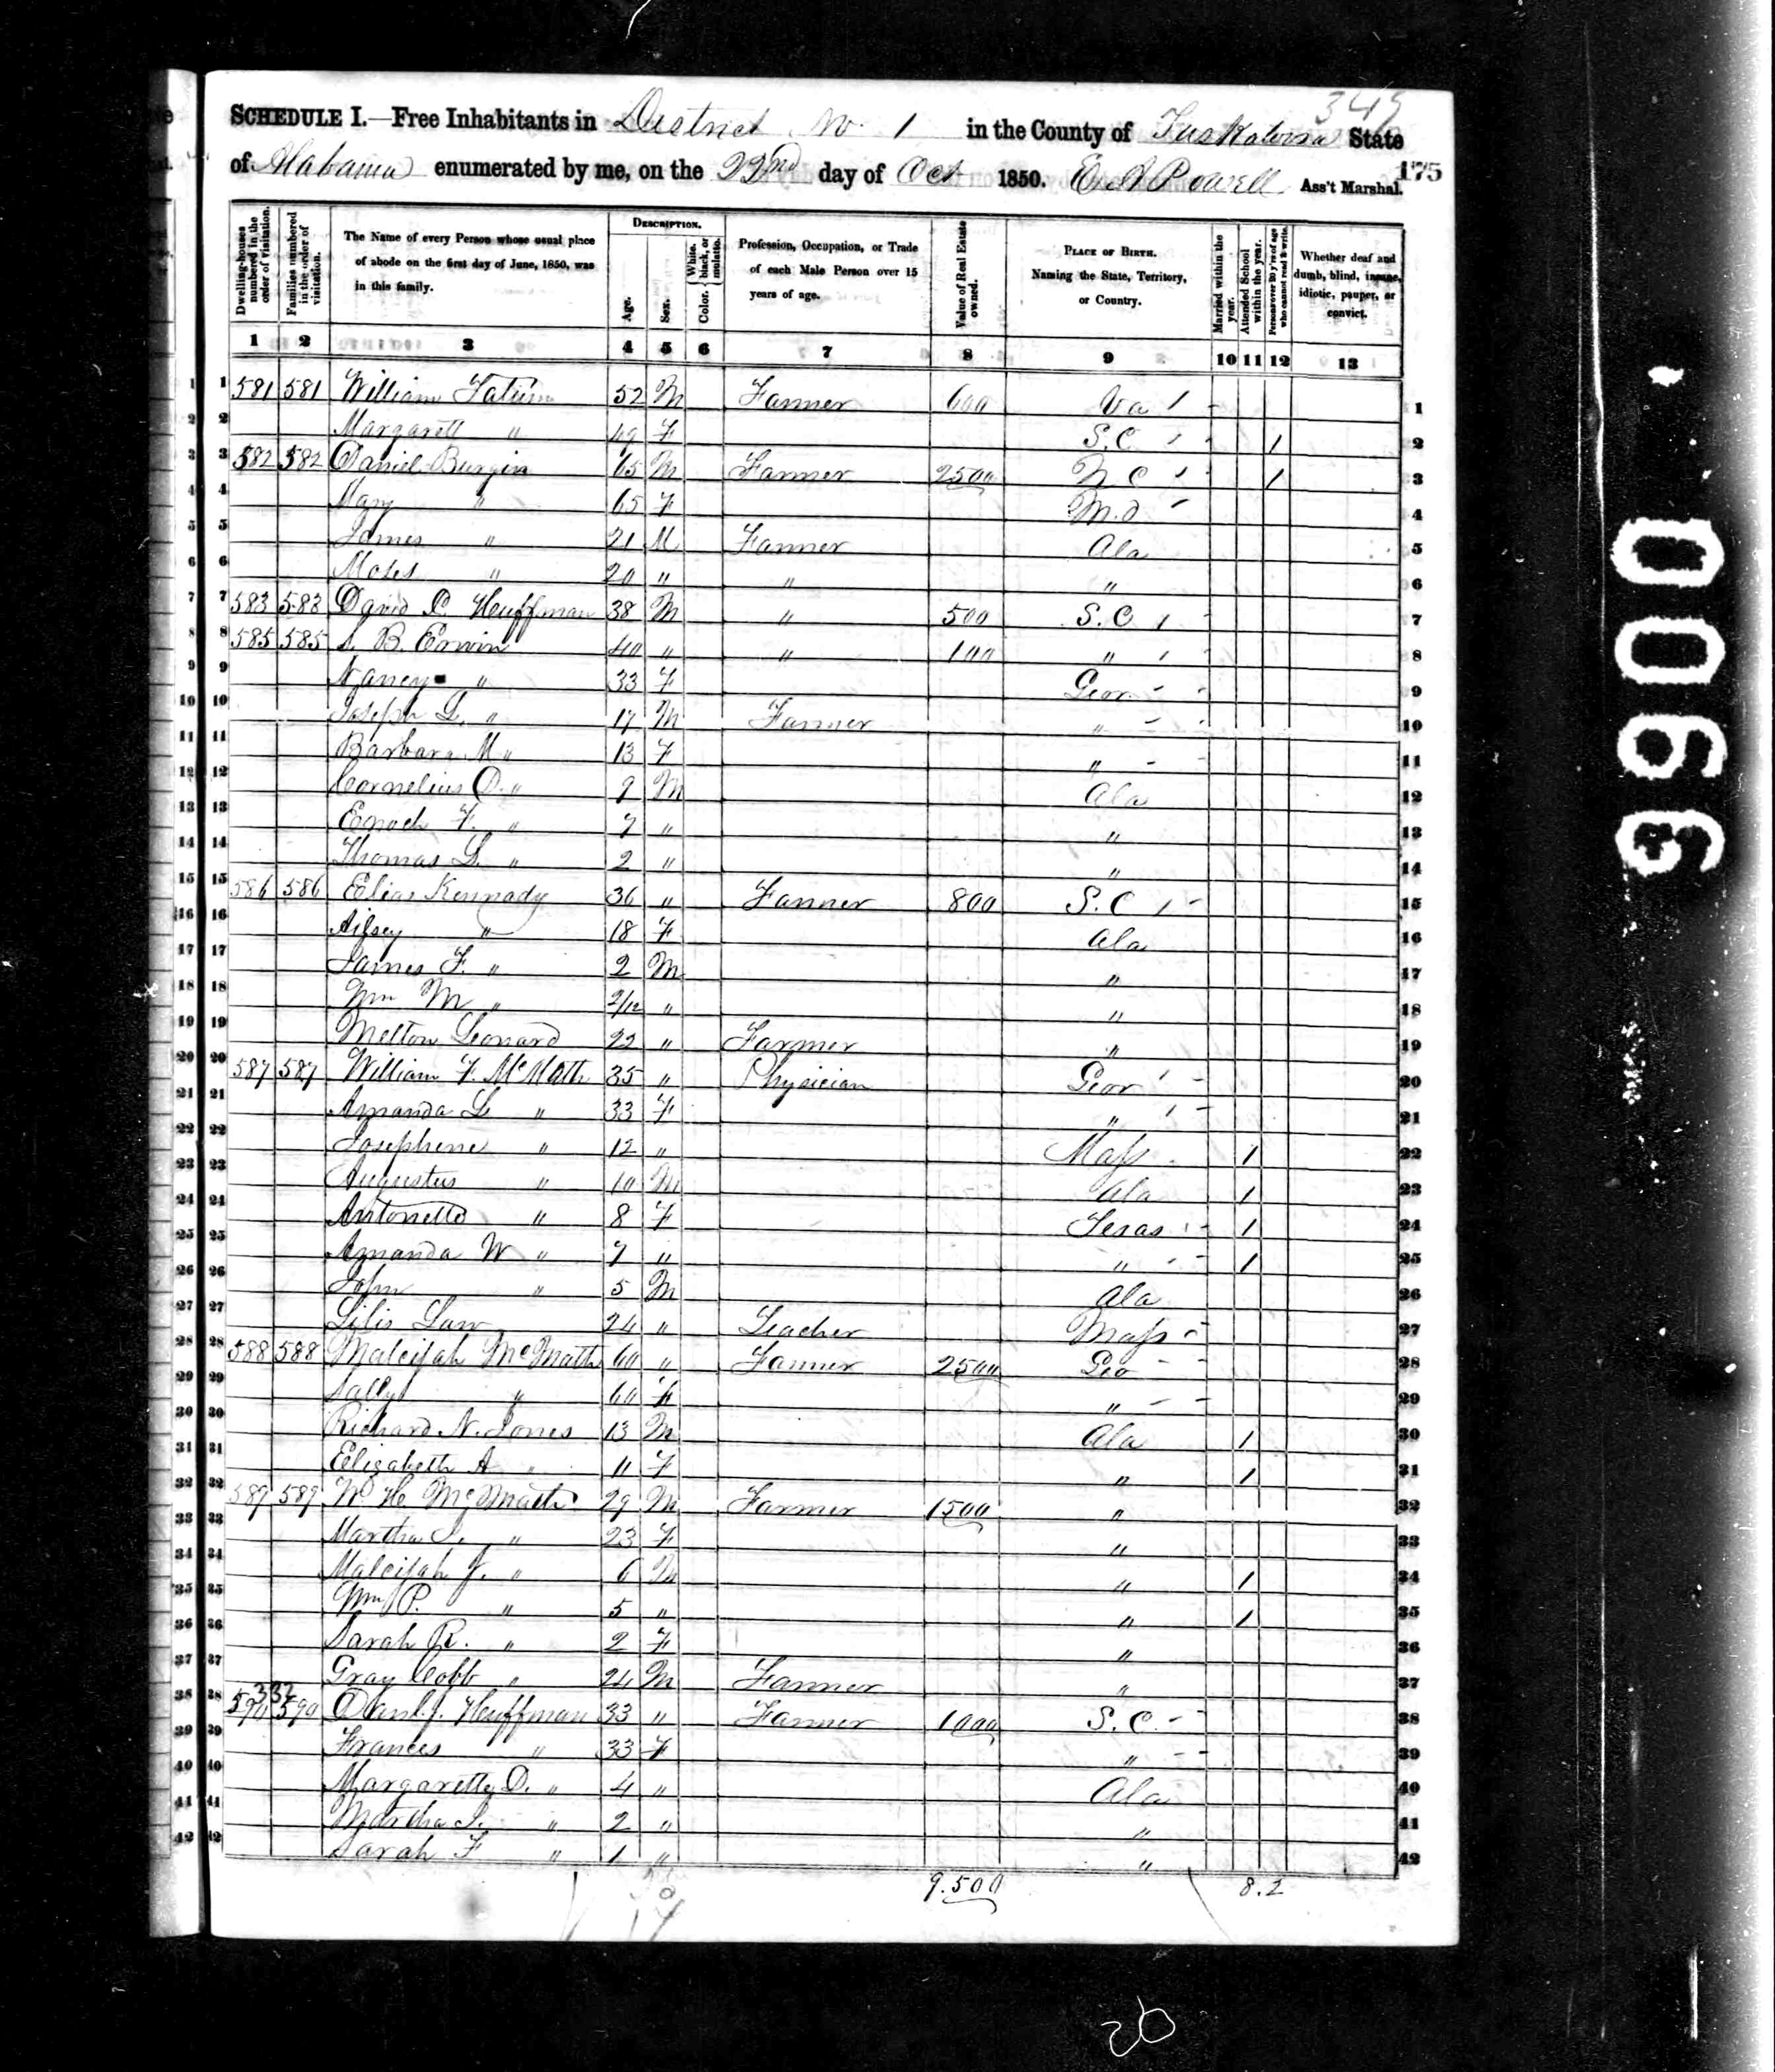 345
SCHEDULE I.—Free Inhabitants in District No. 1 in the County of Tuskaloosa State
of Alabama enumerated by me, on the 22nd day of Oct 1850. E A Powell Ass't Marshal. 175
Dwelling-houses numbered in the order of visitation.
Families numbered in the order of visitation.
The Name of every Person whose usual place of abode on the first day of June, 1850, was in this family.
DESCRIPTION.
Age.
Sex.
Color. White, black, or mulatto.
Profession, Occupation, or Trade of each Male Person over 15 years of age.
Value of Real Estate owned.
PLACE OF BIRTH. Naming the State, Territory, or Country.
Married within the year.
Attended School within the year.
Persons over 20 y'rs of age who cannot read & write.
Whether deaf and dumb, blind, insane, idiotic, pauper, or convict.
1 2 3 4 5 6 7 8 9 10 11 12 13
1 581 581 William Tatum 52 M Farmer 600 Va 1
2 Margarett " 49 F S.C 1 2
3 582 582 Daniel Burgin 65 M Farmer 2500 N C 1 3
4 Mary " 65 F M.d 4
5 James " 21 M Farmer Ala 5
6 Moses " 20 " " " 6
7 583 583 David C. Huffman 38 M " 500 S.C 7
8 585 585 S. B. Erwin 40 " " 100 " 8
9 Nancy " 33 F Geor 9
10 Joseph L. " 17 M Farmer " 10
11 Barbara M " 13 F " 11
12 Cornelius O. " 9 M Ala 12
13 Enoch F. " 7 " " 13
14 Thomas L. " 2 " " 14
15 586 586 Elias Kennady 36 " Farmer 800 S.C 15
16 Ailsey " 18 F Ala 16
17 James F. " 2 M " 17
18 Wm M " 2/12 " " 18
19 Melton Leonard 22 " Farmer " 19
20 587 587 William F. McMath 35 " Physician Geor 20
21 Amanda L " 33 F " 21
22 Josephine " 12 " Mass 1 22
23 Augustus " 10 M Ala 1 23
24 Antonetta " 8 F Texas 1 24
25 Amanda W " 7 " " 1 25
26 John " 5 M Ala 26
27 Law 24 " Teacher Mass 27
28 588 588 Malcijah McMath 60 " Farmer 2500 Geo 28
29 Sally " 60 F " 29
30 Richard N. Jones 13 M Ala 1 30
31 Elizabeth A " 11 F " 1 31
32 589 589 W. H. McMath 29 M Farmer 1500 " 32
33 Martha J. " 23 F " 33
34 Malcijah J. " 6 M " 1 34
35 Wm P. " 5 " " 1 35
36 Sarah R. " 2 F " 36
37 Gray Cobb " 24 M Farmer " 37
332
38 590 590 Danl. J. Huffman 33 " Farmer 1000 S.C. 38
39 Frances " 33 F " 39
40 Margarett D. " 4 " Ala 40
41 Martha J. " 2 " " 41
42 Sarah F " 1 " " 42
9.500 8.2
9900
20